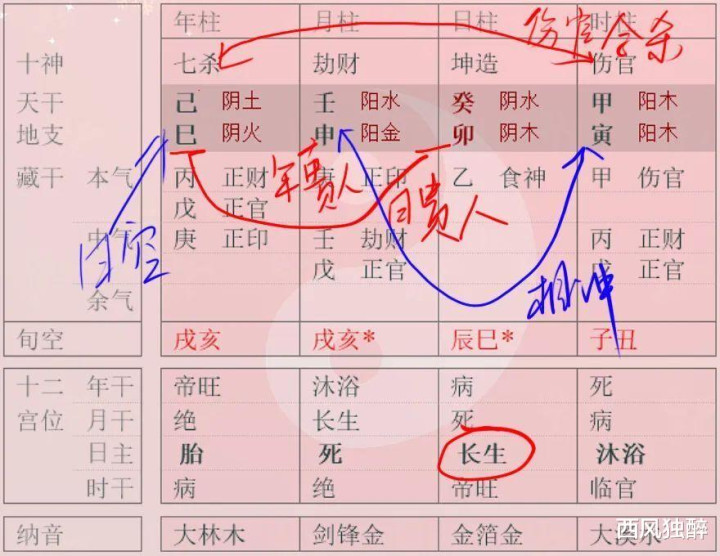 年柱 月柱 日柱 时柱
伤官合杀
十神 七杀 劫财 坤造 伤官
天干 己 阴土 壬 阳水 癸 阴水 甲 阳木
地支 巳 阴火 申 阳金 卯 阴木 寅 阳木
藏干 本气 丙 正财 庚 正印 乙 食神 甲 伤官
戊 正官
年贵人
日贵人
中气 庚 正印 壬 劫财 丙 正财
戊 正官 戊 正官
日空
相冲
余气
旬空 戌亥 戌亥* 辰巳* 子丑
十二 年干 帝旺 沐浴 病 死
宫位 月干 绝 长生 死 病
日主 胎 死 长生 沐浴
时干 病 绝 帝旺 临官
纳音 大林木 剑锋金 金箔金 大溪水
西风独醉